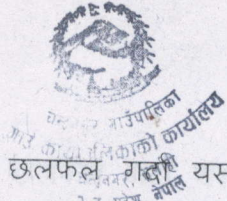 गाउँपालिका
गाउँ कार्यपालिकाको कार्यालय
नेपाल
छलफल गर्दा यस